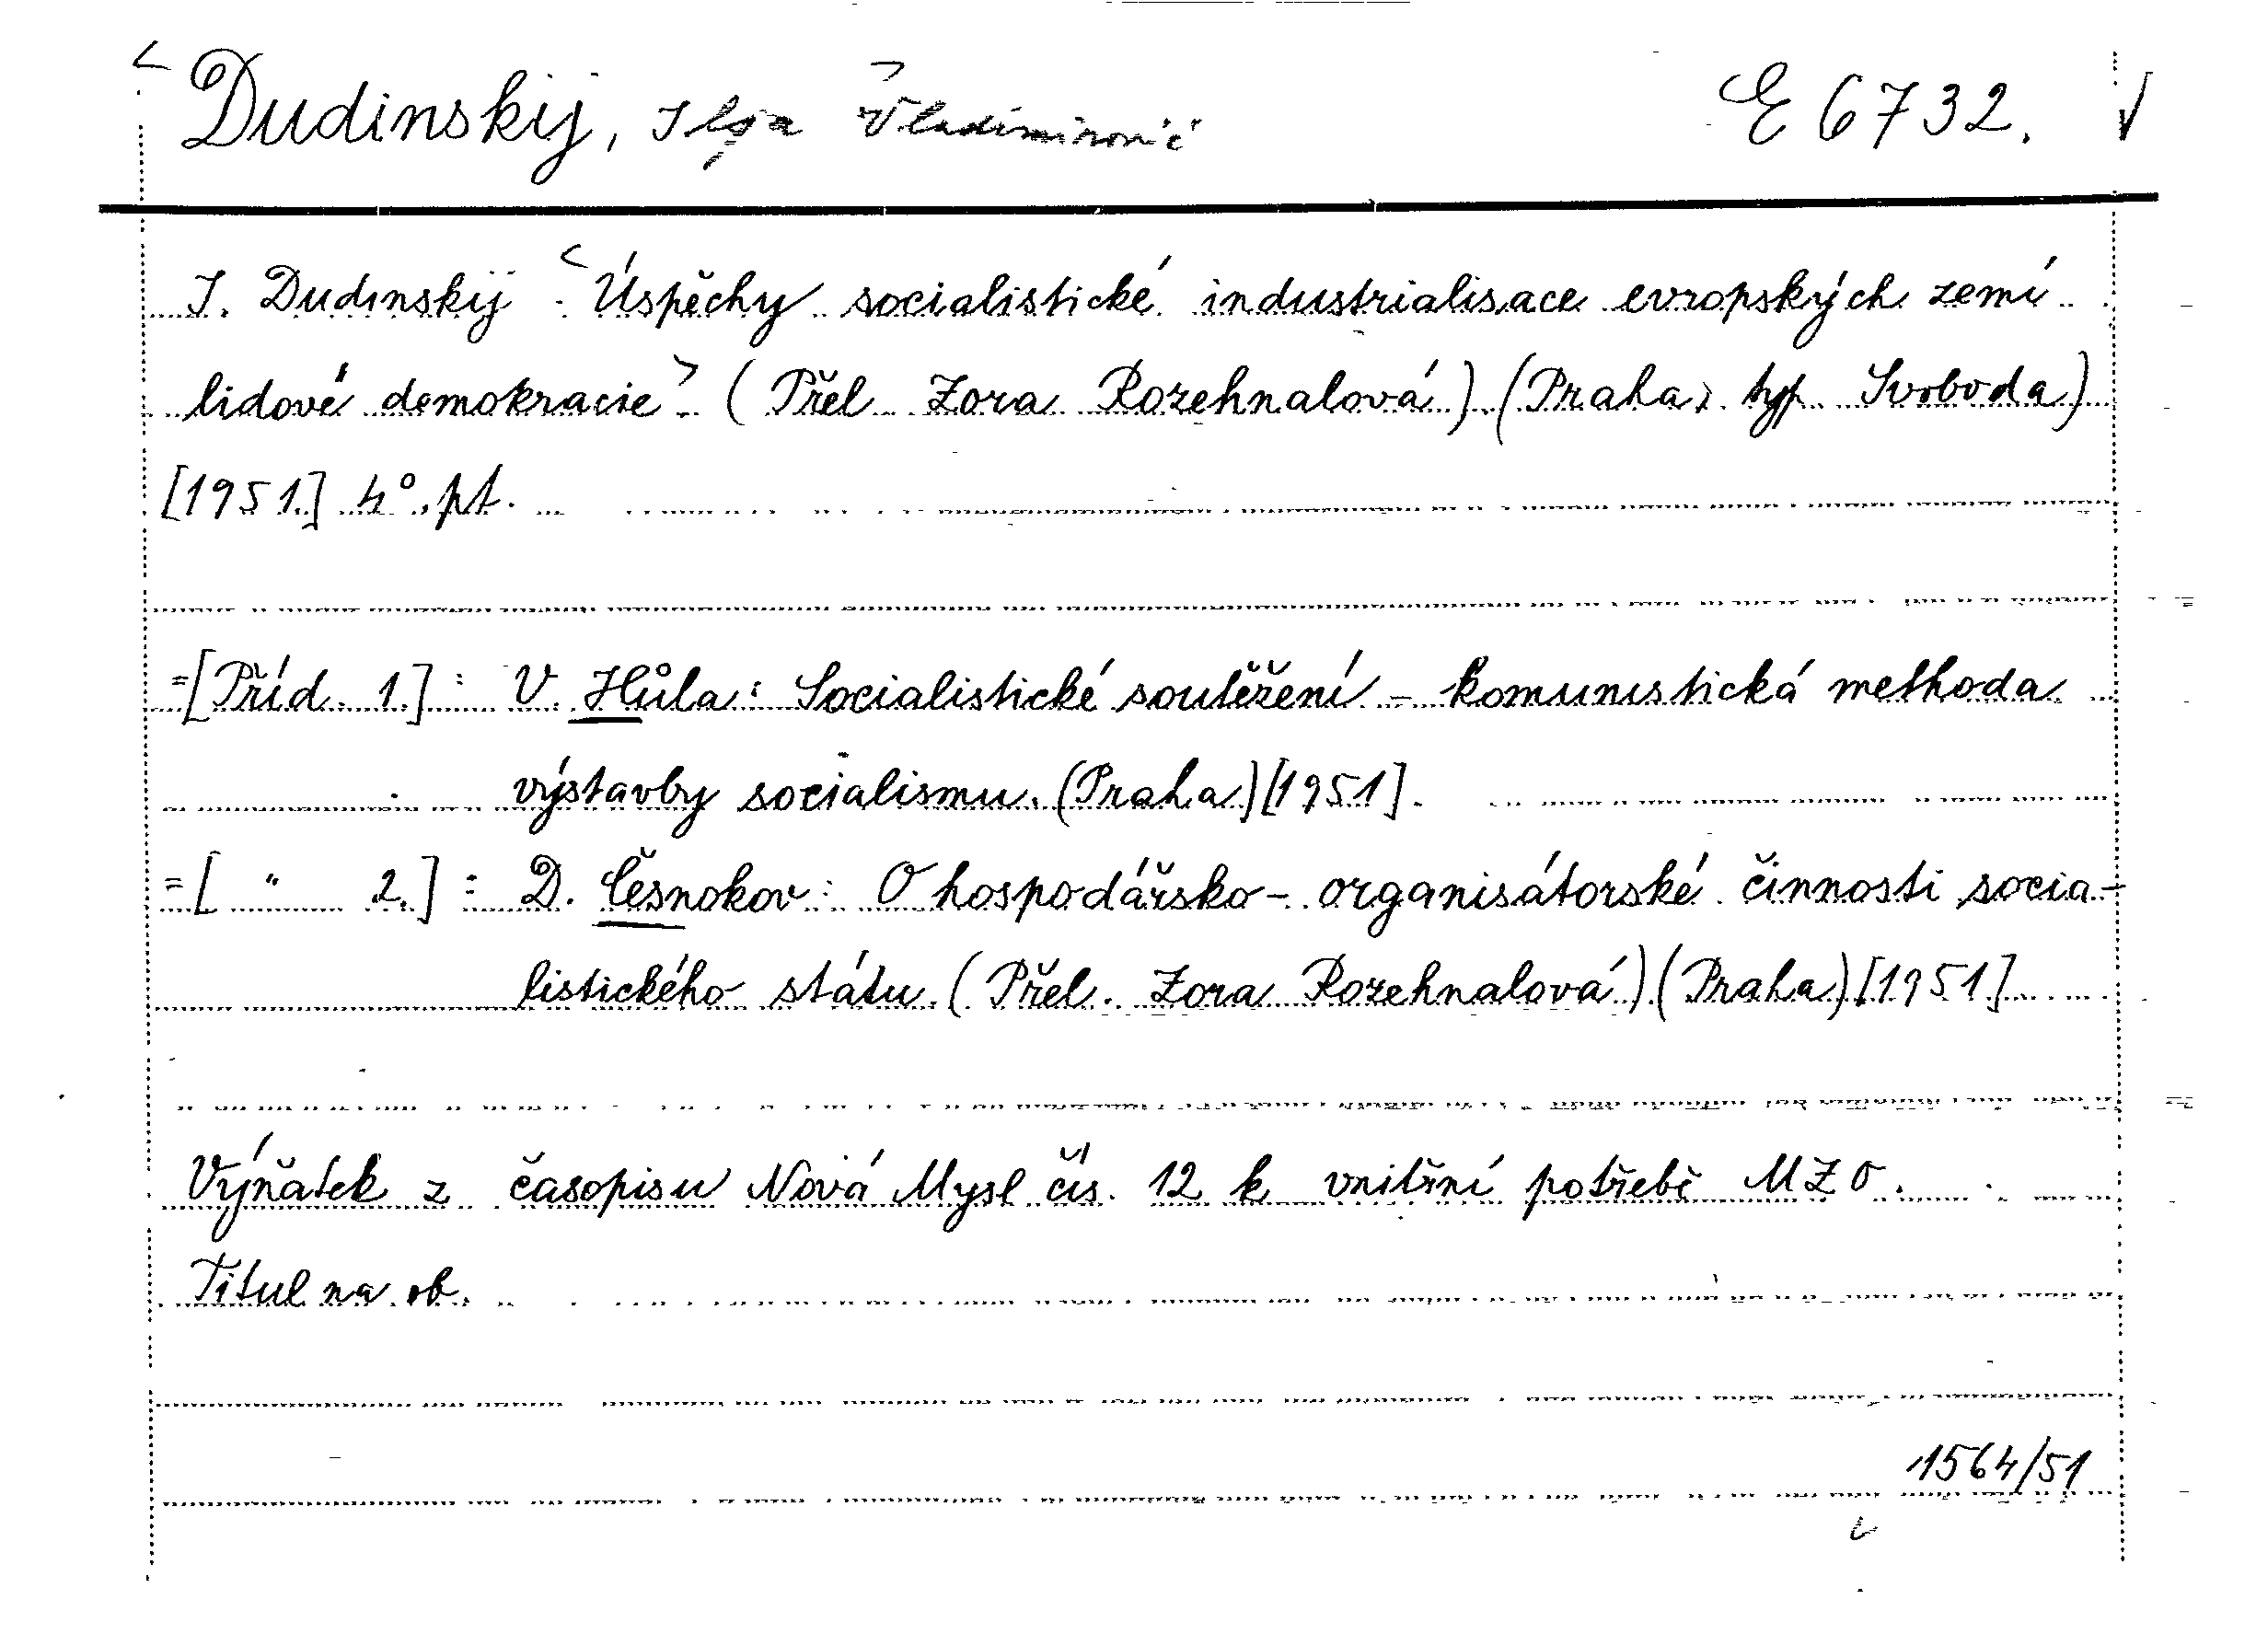 Dudinskij, Ilja Vladimirovič E 6732.
I. Dudinskij: Úspěchy socialistické industrialisace evropských zemí
lidové demokracie. (Přel. Zora Rozehnalová) (Praha, typ. Svoboda)
[1951.] 4°. pt.
=[Příd. 1.]: V. Hůla: Socialistické soutěžení - komunistická methoda
výstavby socialismu. (Praha) [1951].
=[ " 2.]: D. Česnokov: O hospodářsko-organisátorské činnosti socia-
listického státu. (Přel. Zora Rozehnalová) (Praha) [1951]
Výňatek z časopisu Nová Mysl čís. 12 k vnitřní potřebě MZO.
Titul na ob.
1564/51